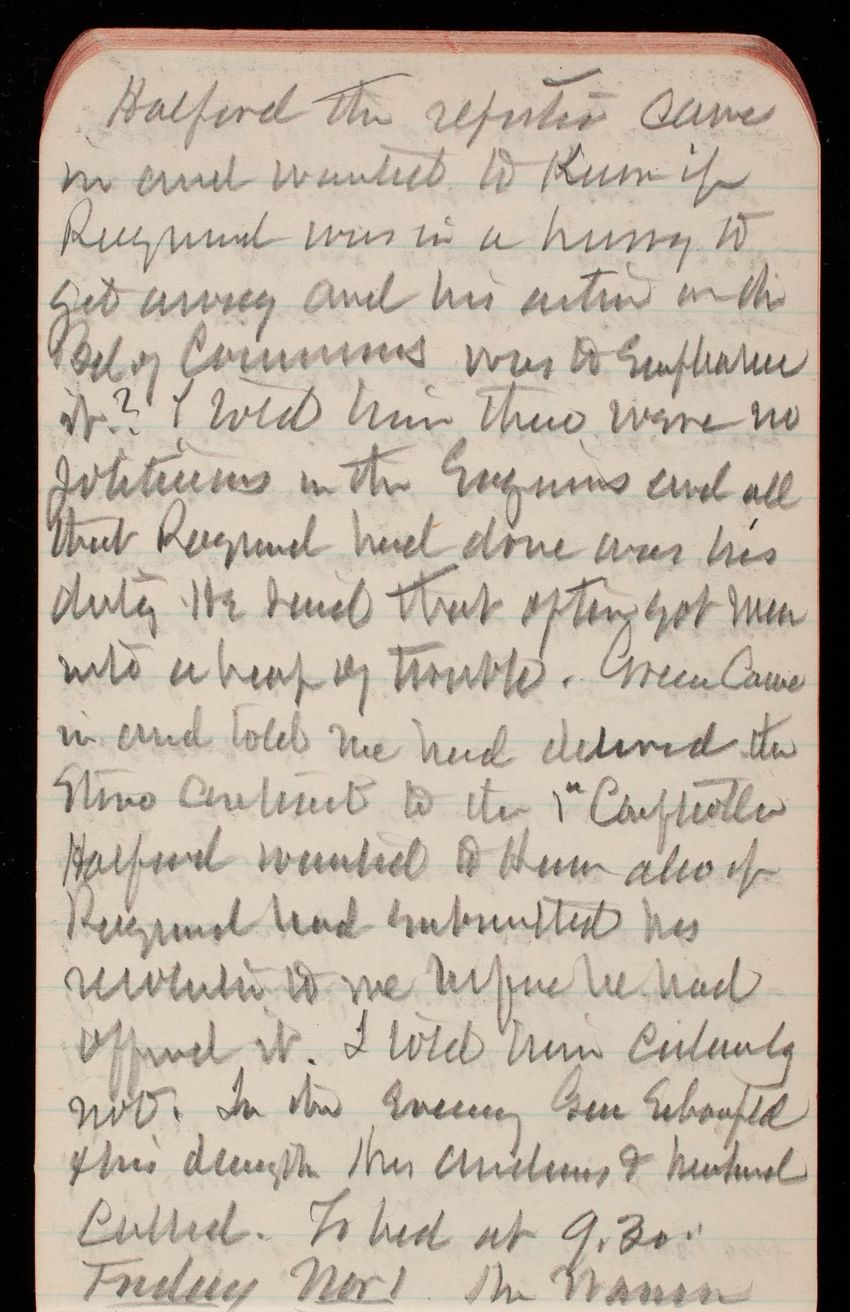 Halford the reporter came
in and wanted to Know if
Raymond was in a hurry to
get away and his action in the
Bd of Commrs was to Emphasize
it? I told him there were no
politicians in the Engineers and all
that Raymond had done was his
duty He said that often got men
into a heap of trouble. Green Came
in and told me had delivered the
Stove Cabinet to the
Halford wanted to Know also if
Raymond had submitted his
resolution to me before he had
offered it. I told him Certainly
not. In the Evening Gen Schofield
& his daughter Mrs Andrews & husband
Called. To bed at 9.30.
Friday Nov 1 The Warren